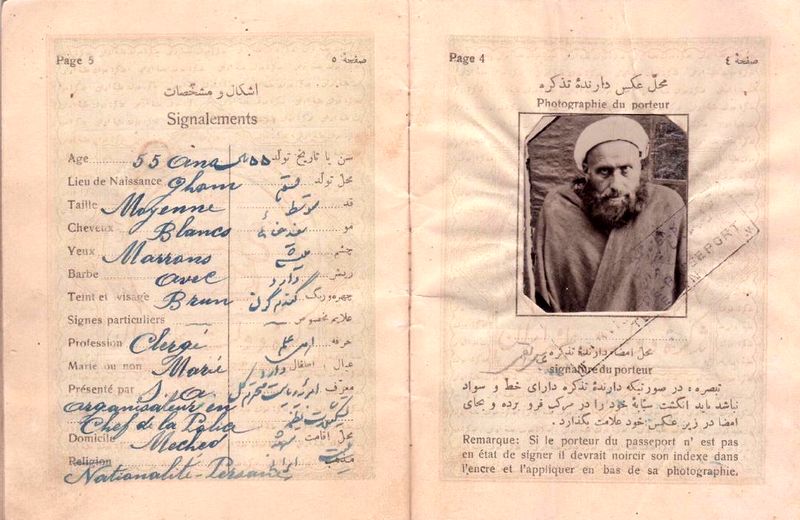 Page 5
صفحهٔ ٥
اشکال و مشخّصات
Signalements
Age 55 ans ٥٥ سن یا تاریخ تولد
Lieu de Naissance Ghom قم محلّ تولد
Taille Moyenne متوسط قد
Cheveux Blancs مو
Yeux Marrons میشی چشم
Barbe avec دارد ریش
Teint et visage Brun گندم گون چهره و رنگ
Signes particuliers علایم مخصوص
Profession Clergé حرفه
Marie ou non Marié دارد عیال
Présenté par S. A. معرّف
organisateur en
Chef de la Police
Domicile Meched مشهد محلّ اقامت
Religion
Nationalité Persane ایران
Page 4
صفحهٔ ٤
محلّ عکس دارندهٔ تذکره
Photographie du porteur
PASSEPORT
محلّ امضاء دارندهٔ تذکره
signature du porteur
تبصره: در صورتیکه دارندهٔ تذکره دارای خط و سواد
نباشد باید انگشت سبّابهٔ خود را در مرکب فرو برده و بجای
امضا در زیر عکس خود علامت بگذارد.
Remarque: Si le porteur du passeport n' est pas
en état de signer il devrait noircir son indexe dans
l'encre et l'appliquer en bas de sa photographie.